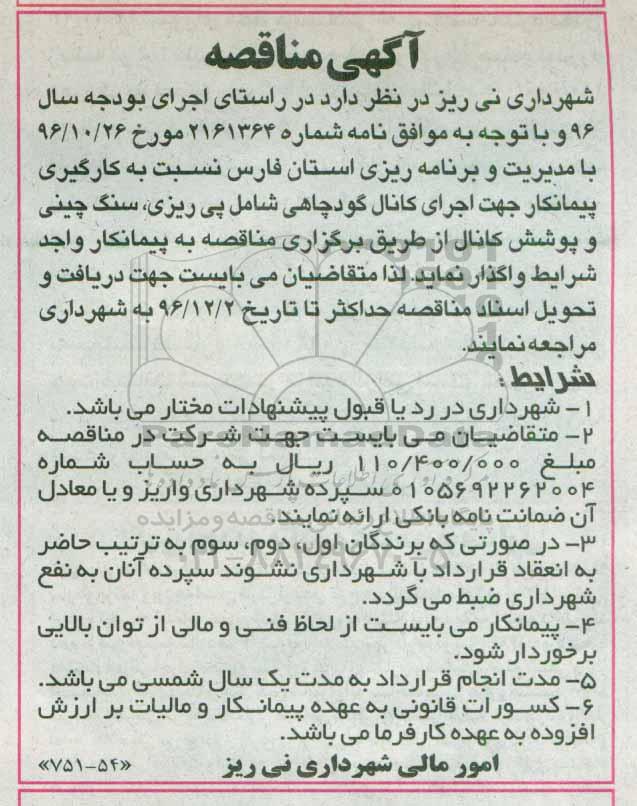 آگهی مناقصه
شهرداری نی ریز در نظر دارد در راستای اجرای بودجه سال
۹۶ و با توجه به موافق نامه شماره ۲۱۶۱۳۶۴ مورخ ۹۶/۱۰/۲۶
با مدیریت و برنامه ریزی استان فارس نسبت به کارگیری
پیمانکار جهت اجرای کانال گودچاهی شامل پی ریزی، سنگ چینی
و پوشش کانال از طریق برگزاری مناقصه به پیمانکار واجد
شرایط واگذار نماید. لذا متقاضیان می بایست جهت دریافت و
تحویل اسناد مناقصه حداکثر تا تاریخ ۹۶/۱۲/۲ به شهرداری
مراجعه نمایند.
شرایط :
۱- شهرداری در رد یا قبول پیشنهادات مختار می باشد.
۲- متقاضیان می بایست جهت شرکت در مناقصه
مبلغ ۱۱۰/۴۰۰/۰۰۰ ریال به حساب شماره
۰۱۰۵۶۹۲۲۶۲۰۰۴ سپرده شهرداری واریز و یا معادل
آن ضمانت نامه بانکی ارائه نمایند.
۳- در صورتی که برندگان اول، دوم، سوم به ترتیب حاضر
به انعقاد قرارداد با شهرداری نشوند سپرده آنان به نفع
شهرداری ضبط می گردد.
۴- پیمانکار می بایست از لحاظ فنی و مالی از توان بالایی
برخوردار شود.
۵- مدت انجام قرارداد به مدت یک سال شمسی می باشد.
۶- کسورات قانونی به عهده پیمانکار و مالیات بر ارزش
افزوده به عهده کارفرما می باشد.
امور مالی شهرداری نی ریز «۷۵۱-۵۴»